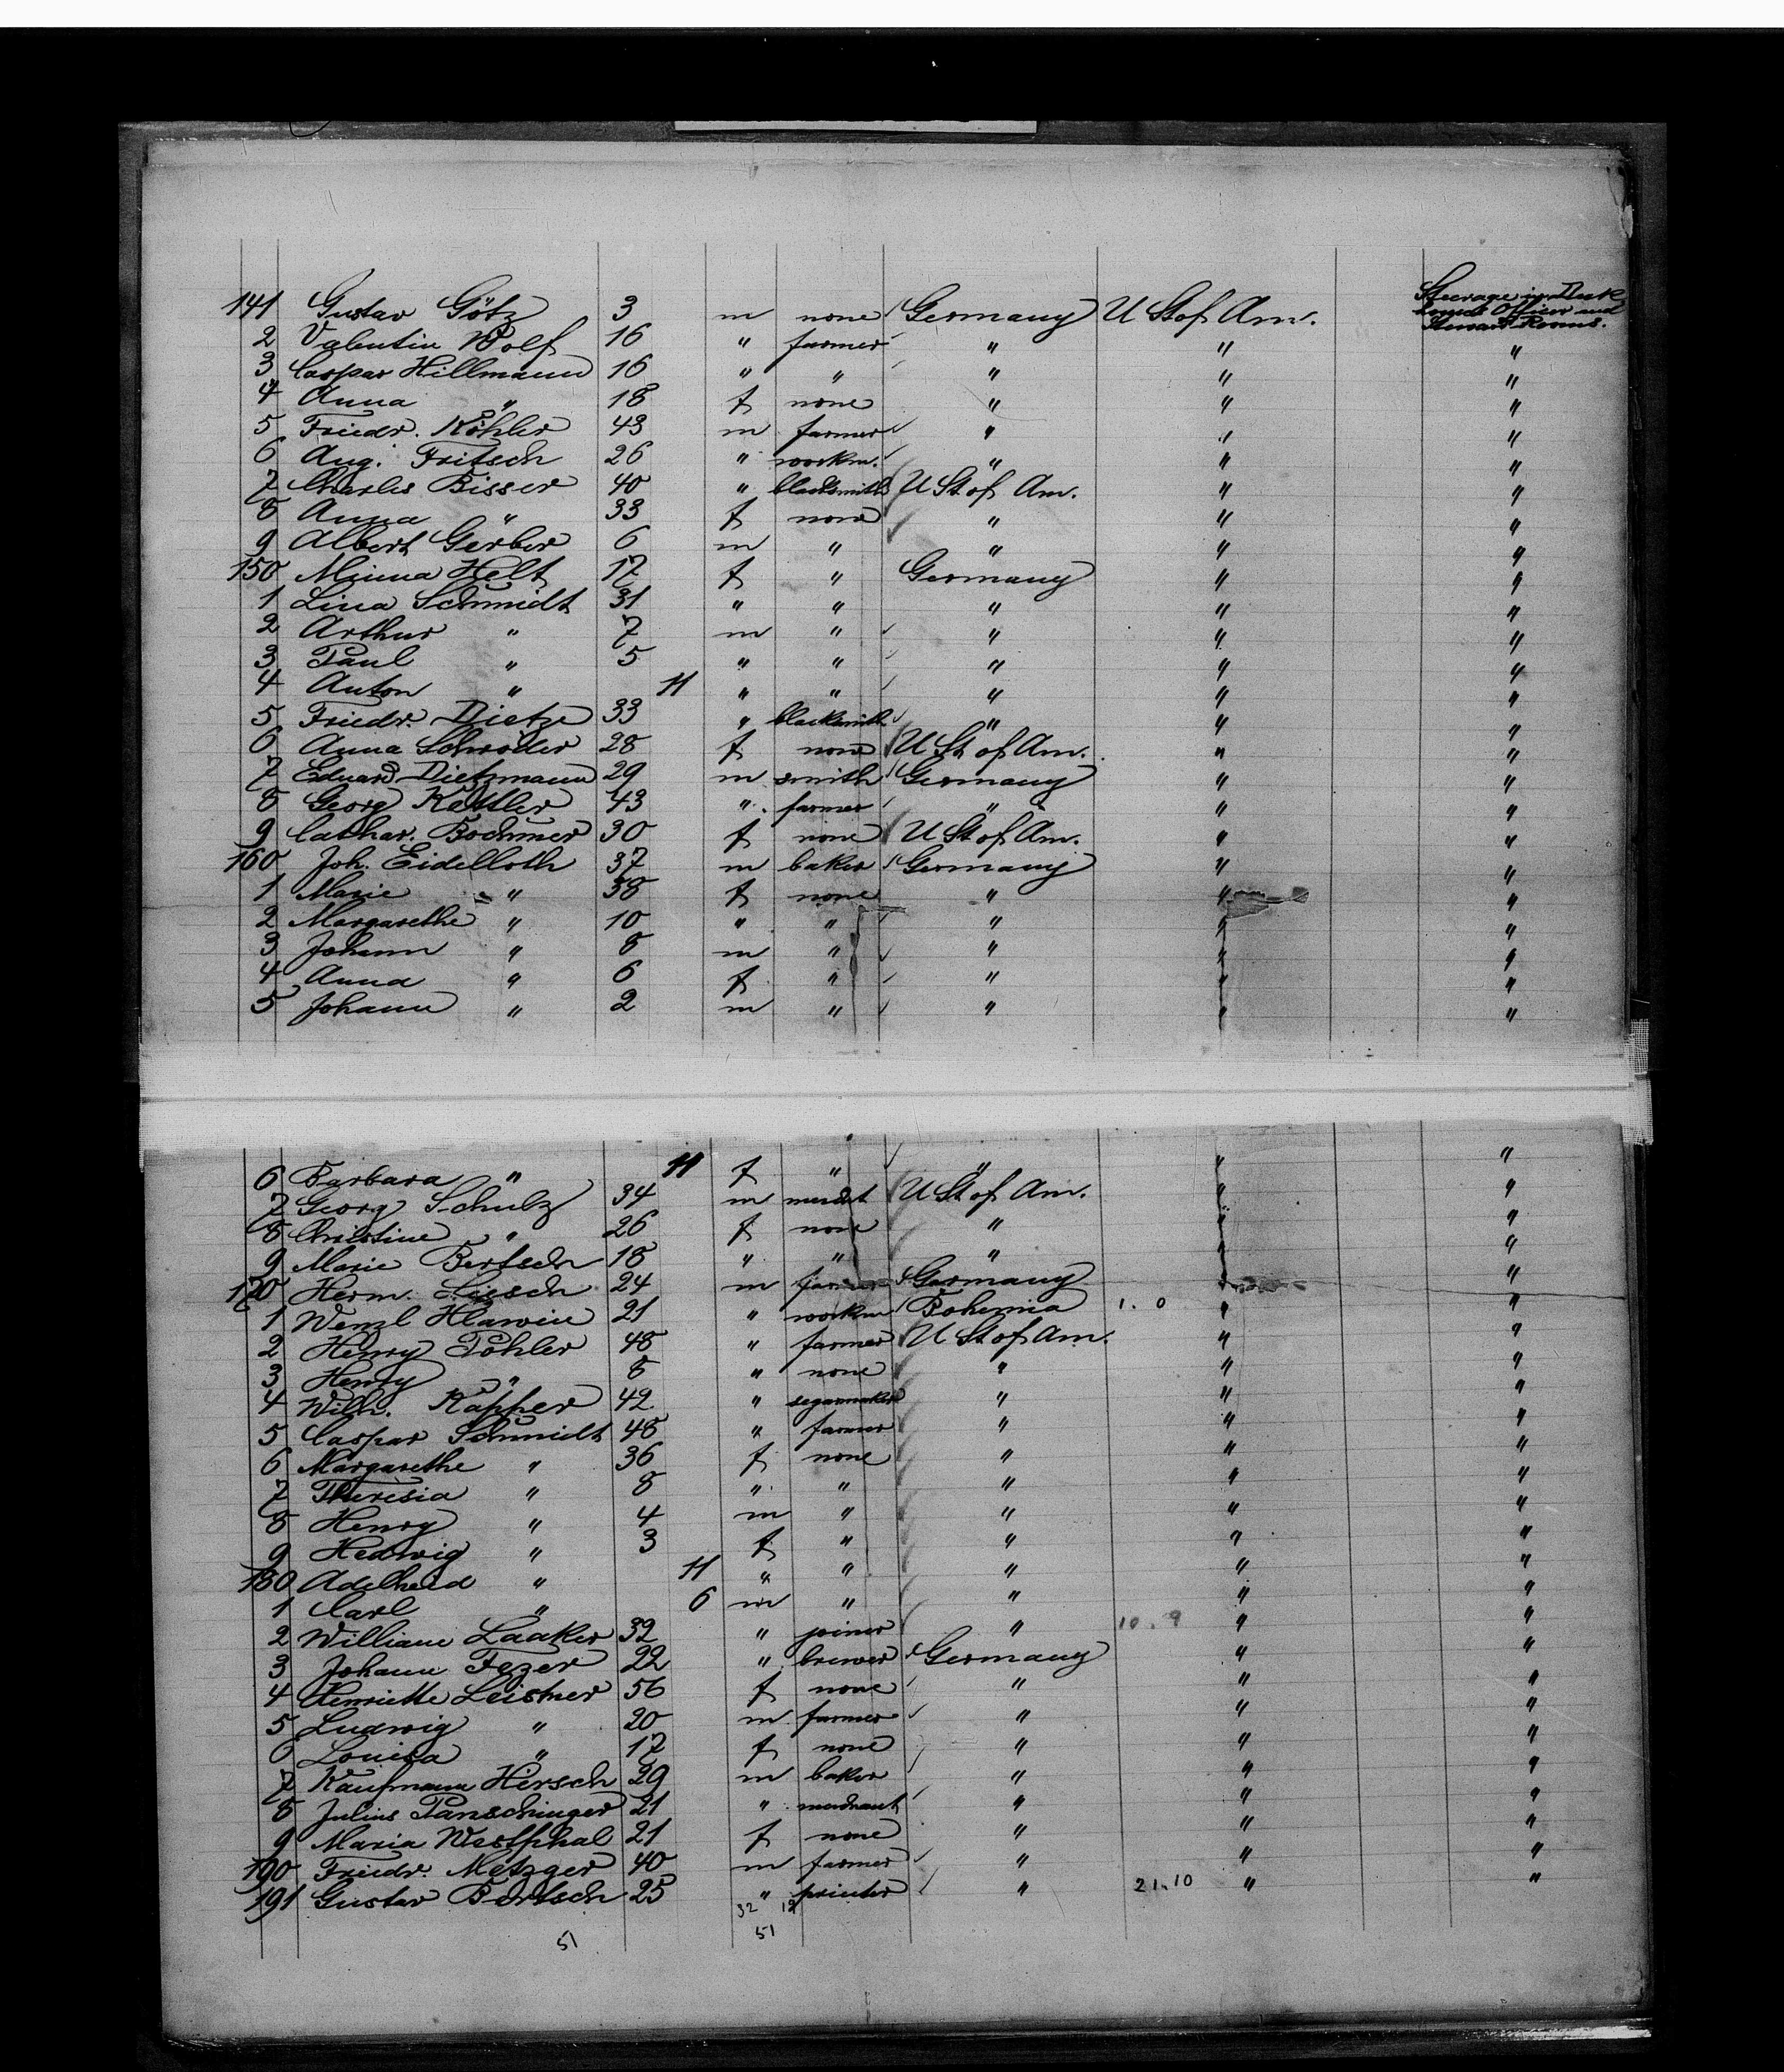 141 Gustav Götz 3 m none Germany U St of Am. Steerage in Deck house Officer and Steward Rooms.
2 Valentin Wolf 16 " farmer " " "
3 Caspar Hillmann 16 " " " " "
4 Anna " 18 f none " " "
5 Friedr. Köhler 43 m farmer " " "
6 Aug. Fritsch 26 " workm. " " "
7 Charles Bisser 40 " blacksmith U St of Am. " "
8 Anna " 33 f none " " "
9 Albert Gerber 6 m " " " "
150 Minna Helt 17 f " Germany " "
1 Lina Schmidt 31 " " " " "
2 Arthur " 7 m " " " "
3 Paul " 5 " " " " "
4 Anton " 11 " " " " "
5 Friedr. Dietze 33 " blacksmith " " "
6 Anna Schröder 28 f none U St of Am. " "
7 Eduard Dietzmann 29 m smith Germany " "
8 Georg Kettler 43 " farmer " " "
9 Cathar. Bochmer 30 f none U St of Am. " "
160 Joh. Eidelloth 37 m baker Germany " "
1 Marie " 38 f none " " "
2 Margarethe " 10 " " " " "
3 Johann " 8 m " " " "
4 Anna " 6 f " " " "
5 Johann " 2 m " " " "
6 Barbara " 11 f " " " "
7 Georg Schulz 34 m mercht U St of Am. " "
8 Christine " 26 f none " " "
9 Marie Bertsch 18 " " " " "
170 Herm. Liesch 24 m farmer Germany " "
1 Wenzl Hlawin 21 " workm Bohemia 1. 0 " "
2 Henry Pöhler 48 " farmer U St of Am. " "
3 Henry " 8 " none " " "
4 Wilh. Käpper 42 " segarmaker " " "
5 Caspar Schmidt 48 " farmer " " "
6 Margarethe " 36 f none " " "
7 Theresia " 8 " " " " "
8 Henry " 4 m " " " "
9 Hedwig " 3 f " " " "
180 Adelheid " 11 " " " " "
1 Carl " 6 m " " " "
2 William Laaker 32 " joiner " 10. 9 " "
3 Johann Fezer 22 " brewer Germany " "
4 Henriette Leistner 56 f none " " "
5 Ludwig " 20 m farmer " " "
6 Louisa " 17 f none " " "
7 Kaufmann Hirsch 29 m baker " " "
8 Julius Panschinger 21 " merchant " " "
9 Maria Westphal 21 f none " " "
190 Friedr. Metzger 40 m farmer " " "
191 Gustav Bertsch 25 " printer " 21.10 " "
32 19
51 51